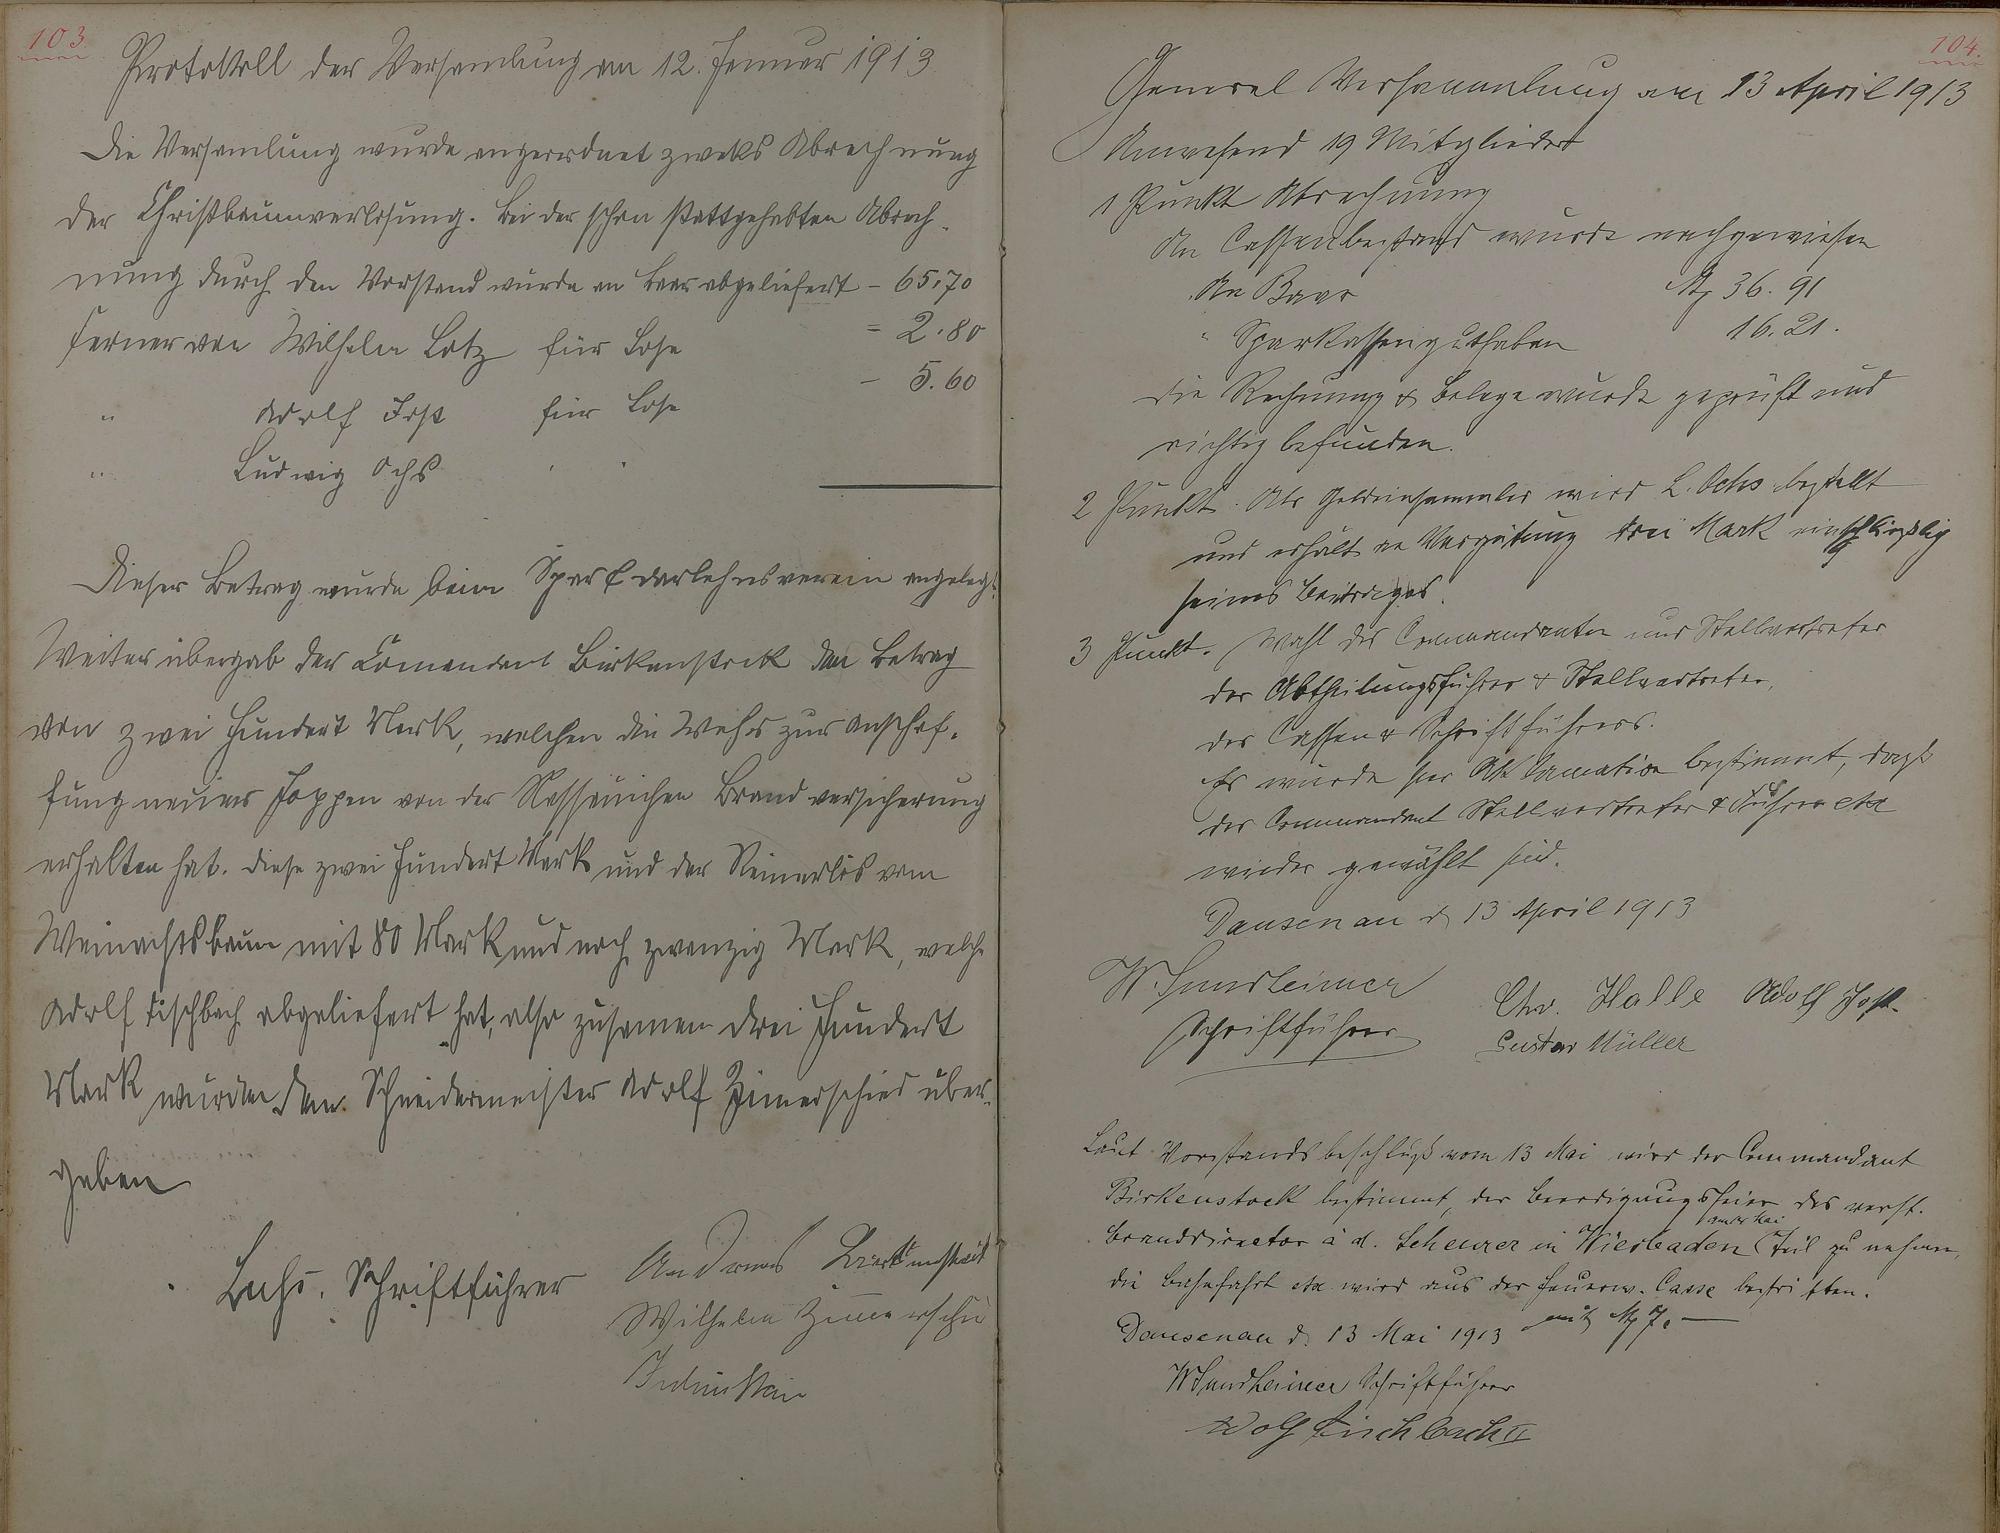 103.
Protokoll der Versamlung am 12. Januar 1913
Die Versamlung wurde angeordnet zweks Abrechnung
der Christbaumverlosung. Bei der schon stattgehabten Abrech-
nung durch den Vorstand wurde an baar abgeliefert – 65,70
ferner von Wilhelm Lotz für Lose = 2.80
" Adolf Jost für Lose – 5.60
" Ludwig Ochs " "
Dieser Betrag wurde beim Spar & darlehnsverein angelegt.
Weiter übergab der Comendant Birkenstock den Betrag
von zwei Hundert Mark, welchen die Wehr zur Anschaf-
fung neuer Joppen von der Nassauischen Brandversicherung
erhalten hat. Diese zwei Hundert Mark und der Reinerlös vom
Weinachtsbaum mit 80 Mark und noch zwanzig Mark, welche
Adolf Fischbach abgeliefert hat, also zusamen drei Hundert
Mark wurden dem Schneidermeister Adolf Zimerschied über-
geben
Schriftführer Andreas Birkenstock
Wilhelm Zimmerschied
104.
General Versammlung am 13 April 1913
Anwesend 19 Mitglieder
1 Punkt Abrechnung
An Cassenbestand wurde nachgewiesen
An Baar M 36.91
" Sparkassenguthaben 16.21.
Die Rechnung & Belege wurde geprüft und
richtig befunden.
2 Punkt. Als Geldeinsammler wird L. Ochs bestellt
und erhält an Vergütung drei Mark einschließlig
seines Beitrages.
3 Punkt. Wahl des Commandanten und Stellvertreter
der Abtheilungsführer & Stellvertreter,
des Cassen & Schriftführers.
Es wurde per Aklamation bestimmt, dass
der Commandant Stellvertreter & Führer etc
wieder gewählt sind.
Dausenau d. 13 April 1913
W. Sundheimer Chr. Halle Adolf Jost.
Schriftführer Gustav Müller
Laut Vorstandsbeschluß vom 13 Mai wird der Commandant
Birkenstock bestimmt, der Beerdigungsfeier des verst.
Branddirector a. d. Scheurer in Wiesbaden Teil zu nehmen,
die Bahnfahrt etc wird aus der Feuerw. Casse bestritten.
mit M 7.—
Dausenau d. 13 Mai 1913
W Sundheimer Schriftführer
Adolf Fischbach II